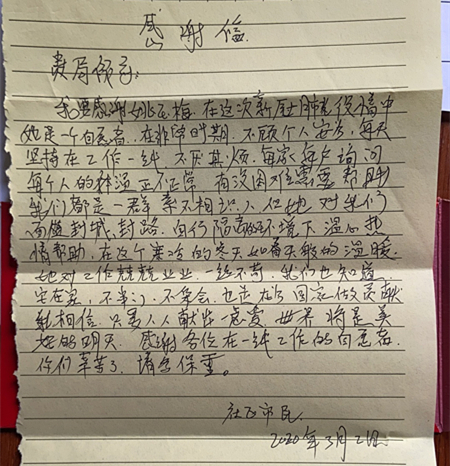 感谢信
贵局领导:
我要感谢姚玉梅,在这次新冠肺炎疫情中
她是一个自愿者,在非常时期,不顾个人安危,每天
坚持在工作一线,不厌其烦,每家每户询问
每个人的体温正不正常,有没困难需要帮助
我们都是一群素不相识人但她对我们
面临封城,封路,自行隔离的环境下温心热
情帮助,在这个寒冷的冬天如春天般的温暖
她对工作兢兢业业,一丝不苟,我们也知道
宅在家,不串门,不集会,也是在为国家做贡献
我相信,只要人人献出一点爱,世界将是美
好的明天,感谢各位在一线工作的自愿者,
你们辛苦了,请您保重。
社区市民
2020年3月2日